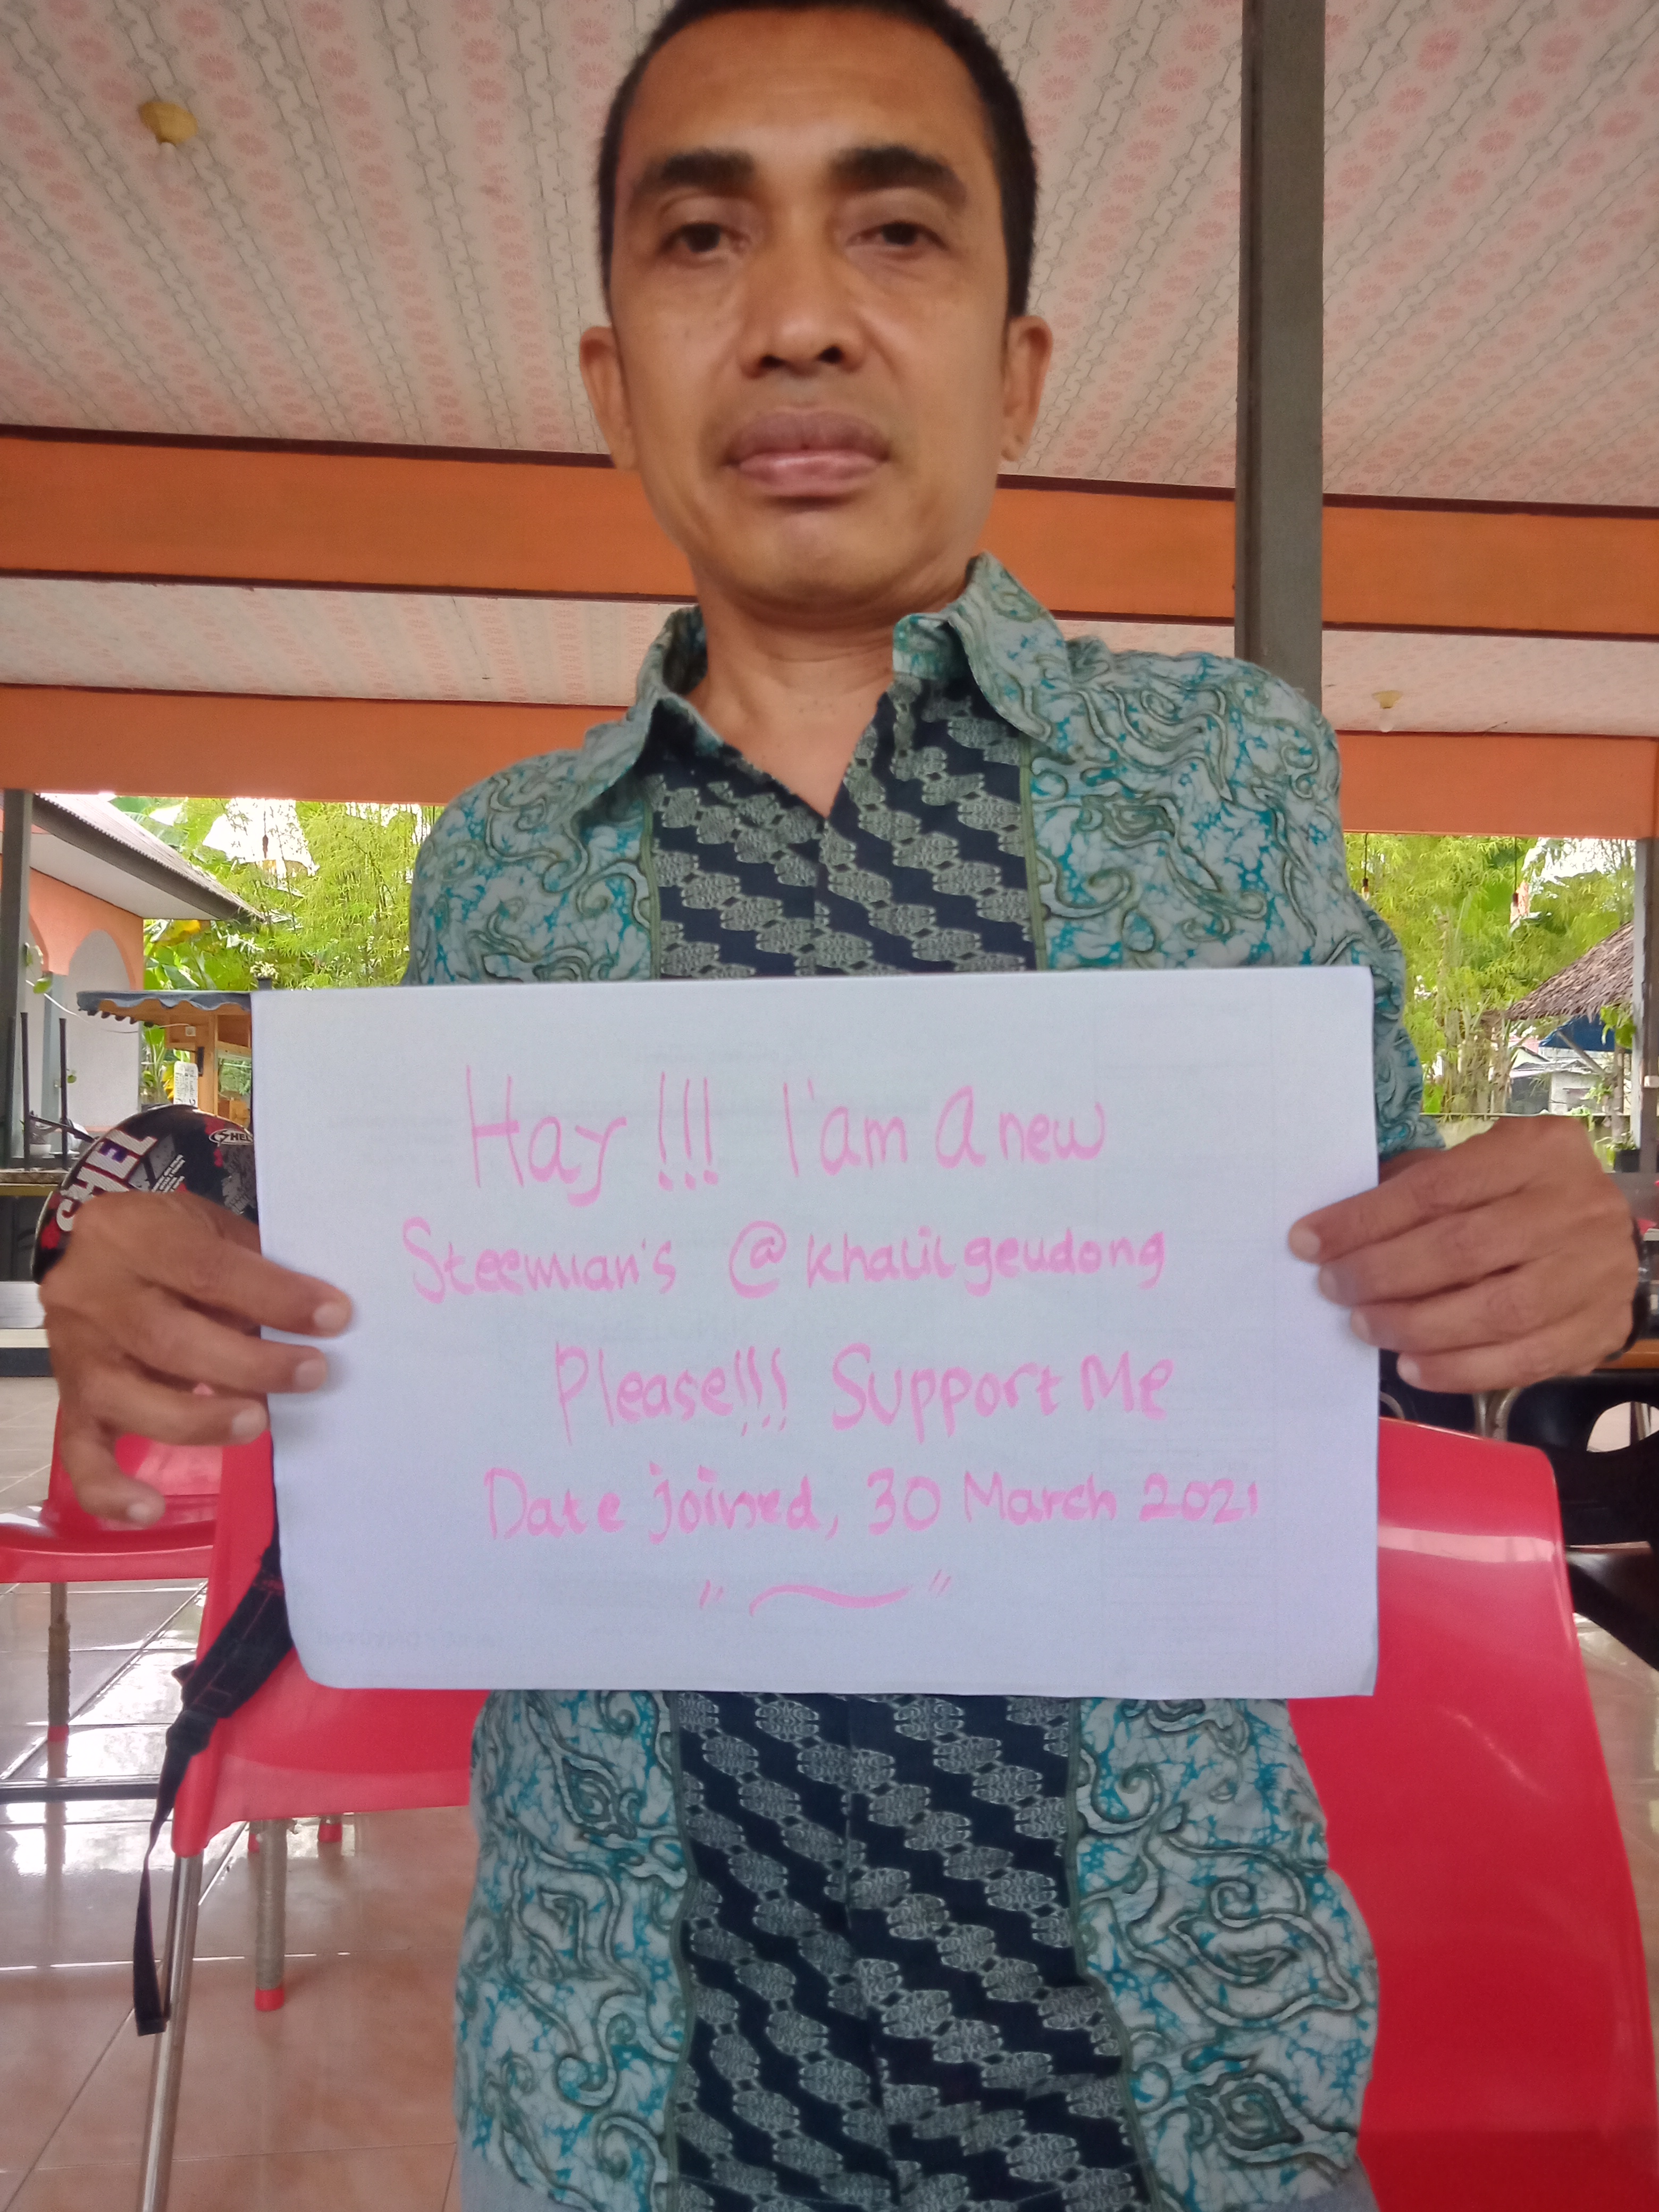 SHEL
SHEL
Hay!!! I'am a new
Steemian's @khalilgeudong
Please!!! Support Me
Date joined, 30 March 2021